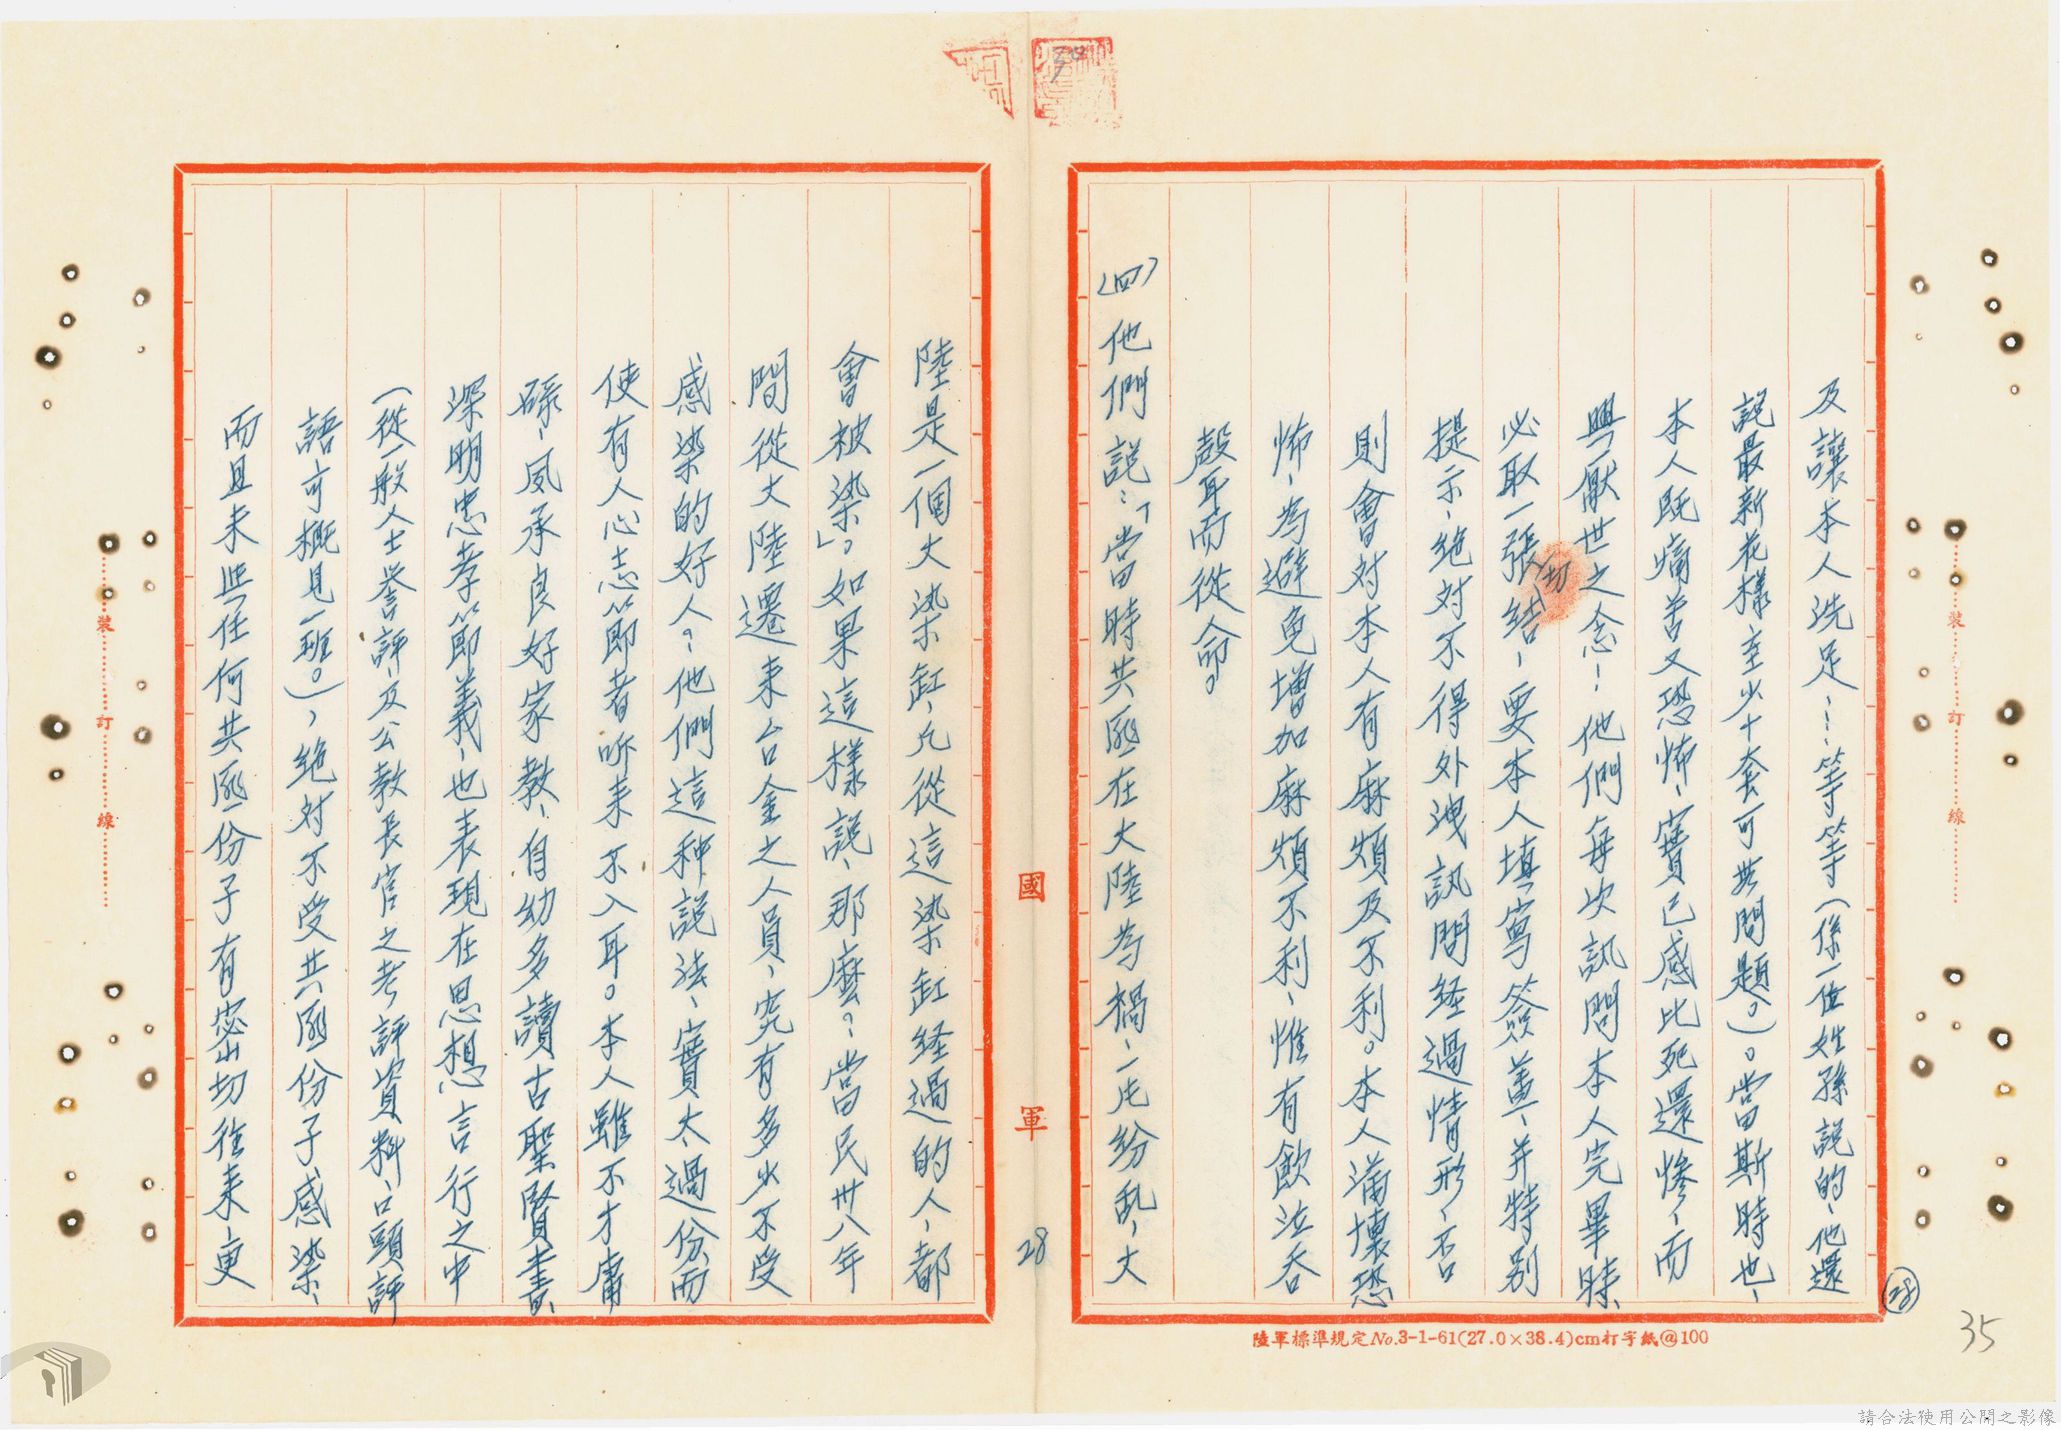 及讓本人洗足、、、等等（係一位姓孫說的、他還
說最新花樣至少十套可共問題。）。當斯時也、
本人既痛苦又恐怖、實已感比死還慘、而
興厭世之念！他們每次訊問本人完畢時、
必取一張切結、要本人填寫簽蓋、并特別
提示、绝对不得外洩訊問経過情形、否
則會对本人有麻煩及不利。本人滿懷恐
怖、為避免增加麻煩不利、惟有飲泣吞
聲耳而從命。
（四）他們說：「當時共匪在大陸為禍、一片紛乱、大
陸是一個大染缸、凡從這染缸経過的人、都
會被染」。如果這樣說、那麼？當民卅八年
間從大陸遷来台金之人員、究有多少不受
感染的好人？他們這种說法、實太過份、而
使有人心志節者听来不入耳。本人雖不才庸
碌、夙承良好家教、自幼多讀古聖賢書、
深明忠孝節義、也表現在思想言行之中
（從一般人士誉評、及公教長官之考評資料、口頭評
語可概見一班。）、绝对不受共匪份子感染、
而且未與任何共匪份子有密切往来、更
國軍
28
28
35
裝訂線
裝訂線
陸軍標準規定No.3-1-61(27.0×38.4)cm打字紙@100
請合法使用公開之影像